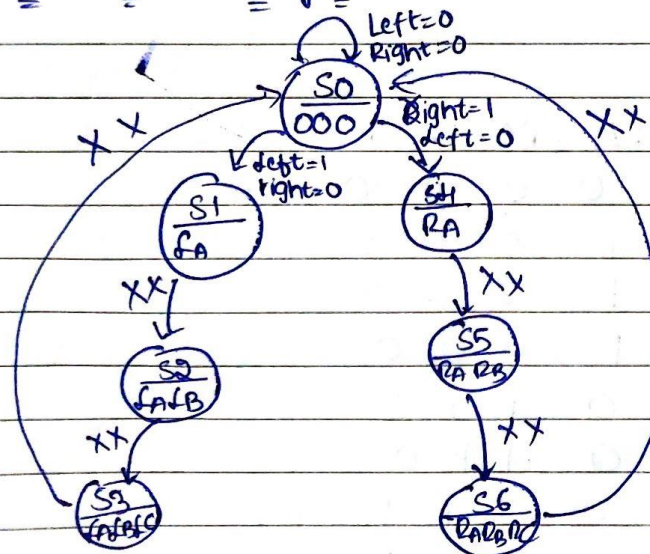 Left=0
Right=0
S0
000
X X
Right=1
Left=0
XX
Left=1
right=0
S1
LA
S4
RA
XX
XX
S2
LALB
S5
RA RB
XX
XX
S3
LALBLC
S6
RARBRC